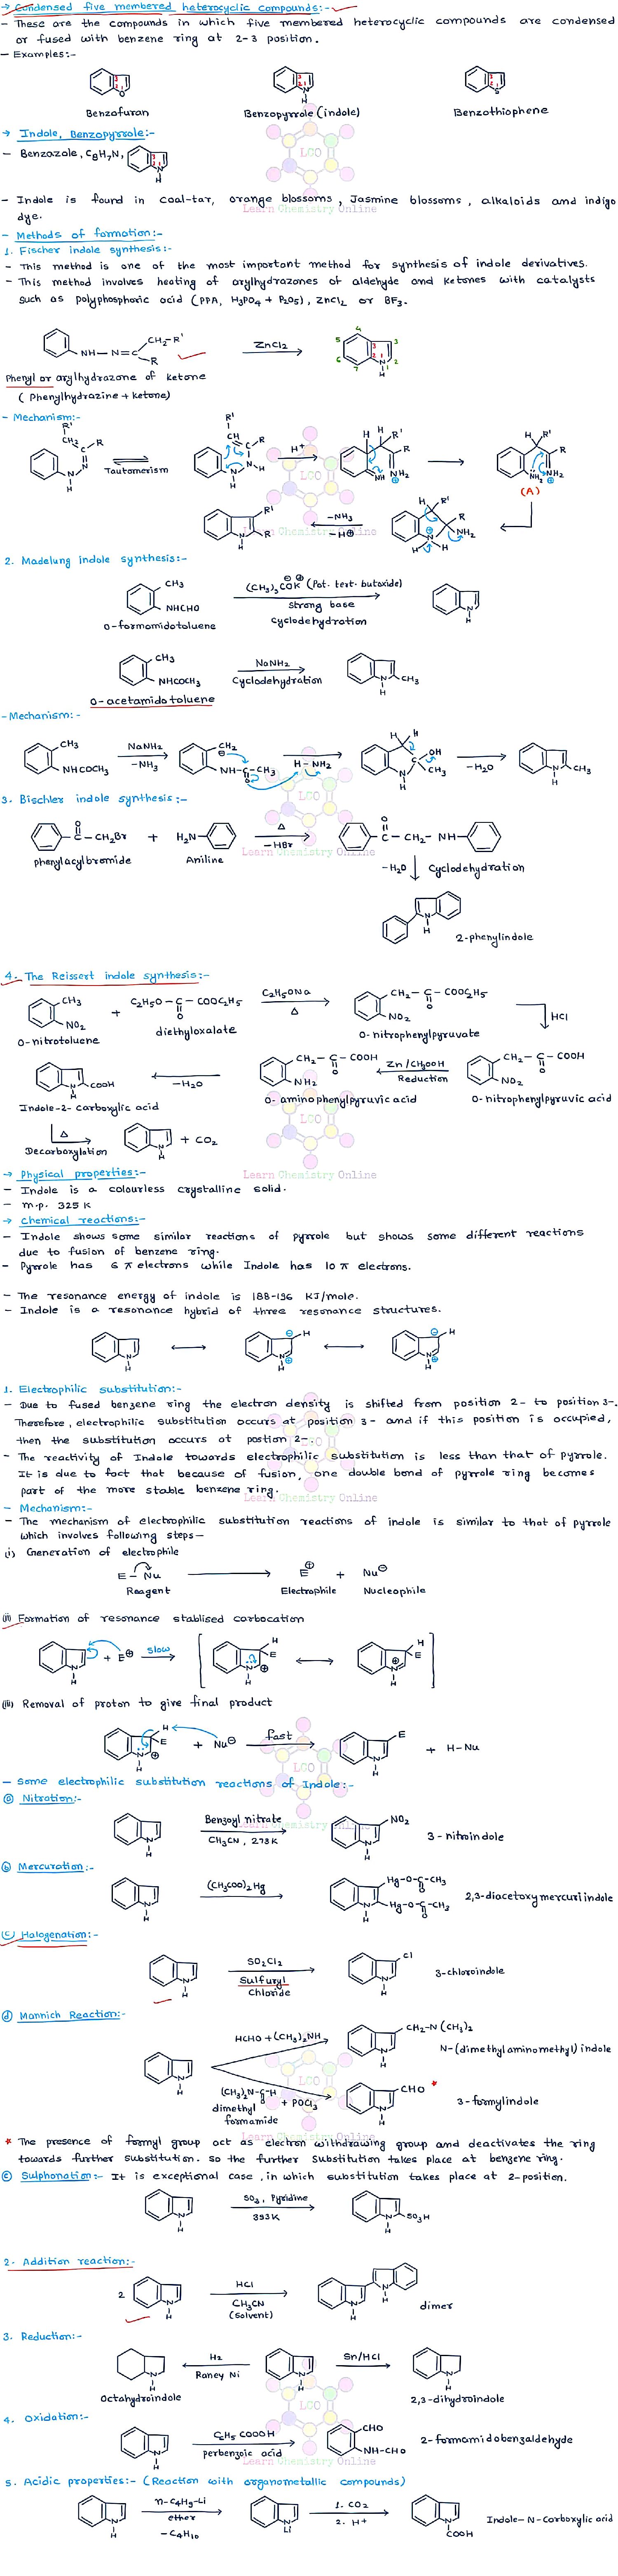 → Condensed five membered heterocyclic compounds:-
- These are the compounds in which five membered heterocyclic compounds are condensed
or fused with benzene ring at 2-3 position.
- Examples:-
Benzofuran Benzopyrrole (indole) Benzothiophene
→ Indole, Benzopyrrole:-
- Benzazole, C8H7N,
- Indole is found in coal-tar, orange blossoms, Jasmine blossoms, alkaloids and indigo
dye.
Learn Chemistry Online
- Methods of formation:-
1. Fischer indole synthesis:-
- This method is one of the most important method for synthesis of indole derivatives.
- This method involves heating of arylhydrazones of aldehyde and ketones with catalysts
such as polyphosphoric acid (PPA, H3PO4 + P2O5), ZnCl2 or BF3.
NH-N=C CH2-R' R ZnCl2
Phenyl or arylhydrazone of ketone
(Phenylhydrazine + ketone)
- Mechanism:-
Tautomerism H+
(A)
-NH3
-H⊕
2. Madelung indole synthesis:-
CH3 NHCHO (CH3)3COK (Pot. tert. butoxide)
strong base
o-formamidotoluene cyclodehydration
CH3 NHCOCH3 NaNH2 CH3
Cyclodehydration
o-acetamidotoluene
- Mechanism:-
CH3 NHCOCH3 NaNH2 -NH3 CH2 NH-C-CH3 O H-NH2 OH CH3 -H2O CH3
3. Bischler indole synthesis:-
C-CH2Br + H2N Δ -HBr C-CH2-NH
phenylacylbromide Aniline
-H2O Cyclodehydration
2-phenylindole
4. The Reissert indole synthesis:-
CH3 NO2 + C2H5O-C-COOC2H5 C2H5ONa Δ CH2-C-COOC2H5 NO2 HCl
o-nitrotoluene diethyloxalate o-nitrophenylpyruvate
COOH -H2O CH2-C-COOH NH2 Zn/CH3OOH Reduction CH2-C-COOH NO2
Indole-2-carboxylic acid o-aminophenylpyruvic acid o-nitrophenylpyruvic acid
Δ
Decarboxylation + CO2
→ Physical properties:-
- Indole is a colourless crystalline solid.
- m.p. 325 K
→ Chemical reactions:-
- Indole shows some similar reactions of pyrrole but shows some different reactions
due to fusion of benzene ring.
- Pyrrole has 6 π electrons while Indole has 10 π electrons.
- The resonance energy of indole is 188-196 KJ/mole.
- Indole is a resonance hybrid of three resonance structures.
1. Electrophilic substitution:-
- Due to fused benzene ring the electron density is shifted from position 2- to position 3-.
Therefore, electrophilic substitution occurs at position 3- and if this position is occupied,
then the substitution occurs at postion 2-.
- The reactivity of Indole towards electrophilic substitution is less than that of pyrrole.
It is due to fact that because of fusion, one double bond of pyrrole ring becomes
part of the more stable benzene ring.
- Mechanism:-
- The mechanism of electrophilic substitution reactions of indole is similar to that of pyrrole
which involves following steps-
(i) Generation of electrophile
E-Nu E⊕ + Nu⊖
Reagent Electrophile Nucleophile
(ii) Formation of resonance stablised carbocation
+ E⊕ slow
(iii) Removal of proton to give final product
+ Nu⊖ fast + H-Nu
- Some electrophilic substitution reactions of Indole:-
ⓐ Nitration:-
Benzoyl nitrate
CH3CN, 273K NO2 3-nitroindole
ⓑ Mercuration:-
(CH3COO)2Hg Hg-O-C-CH3 Hg-O-C-CH3 2,3-diacetoxymercuriindole
ⓒ Halogenation:-
SO2Cl2 Cl 3-chloroindole
Sulfuryl
Chloride
ⓓ Mannich Reaction:-
HCHO + (CH3)2NH CH2-N(CH3)2
N-(dimethylaminomethyl) indole
(CH3)2N-C-H + POCl3 CHO * 3-formylindole
dimethyl
formamide
* The presence of formyl group act as electron withdrawing group and deactivates the ring
towards further substitution. So the further Substitution takes place at benzene ring.
ⓔ Sulphonation:- It is exceptional case, in which substitution takes place at 2-position.
SO3, Pyridine
393K SO3H
2. Addition reaction:-
2 HCl
CH3CN
(Solvent) dimer
3. Reduction:-
H2 Raney Ni Sn/HCl
Octahydroindole 2,3-dihydroindole
4. Oxidation:-
C6H5COOOH CHO NH-CHO 2-formamidobenzaldehyde
perbenzoic acid
5. Acidic properties:- (Reaction with organometallic compounds)
n-C4H9-Li 1. CO2
ether 2. H+ Indole-N-Carboxylic acid
-C4H10 Li COOH